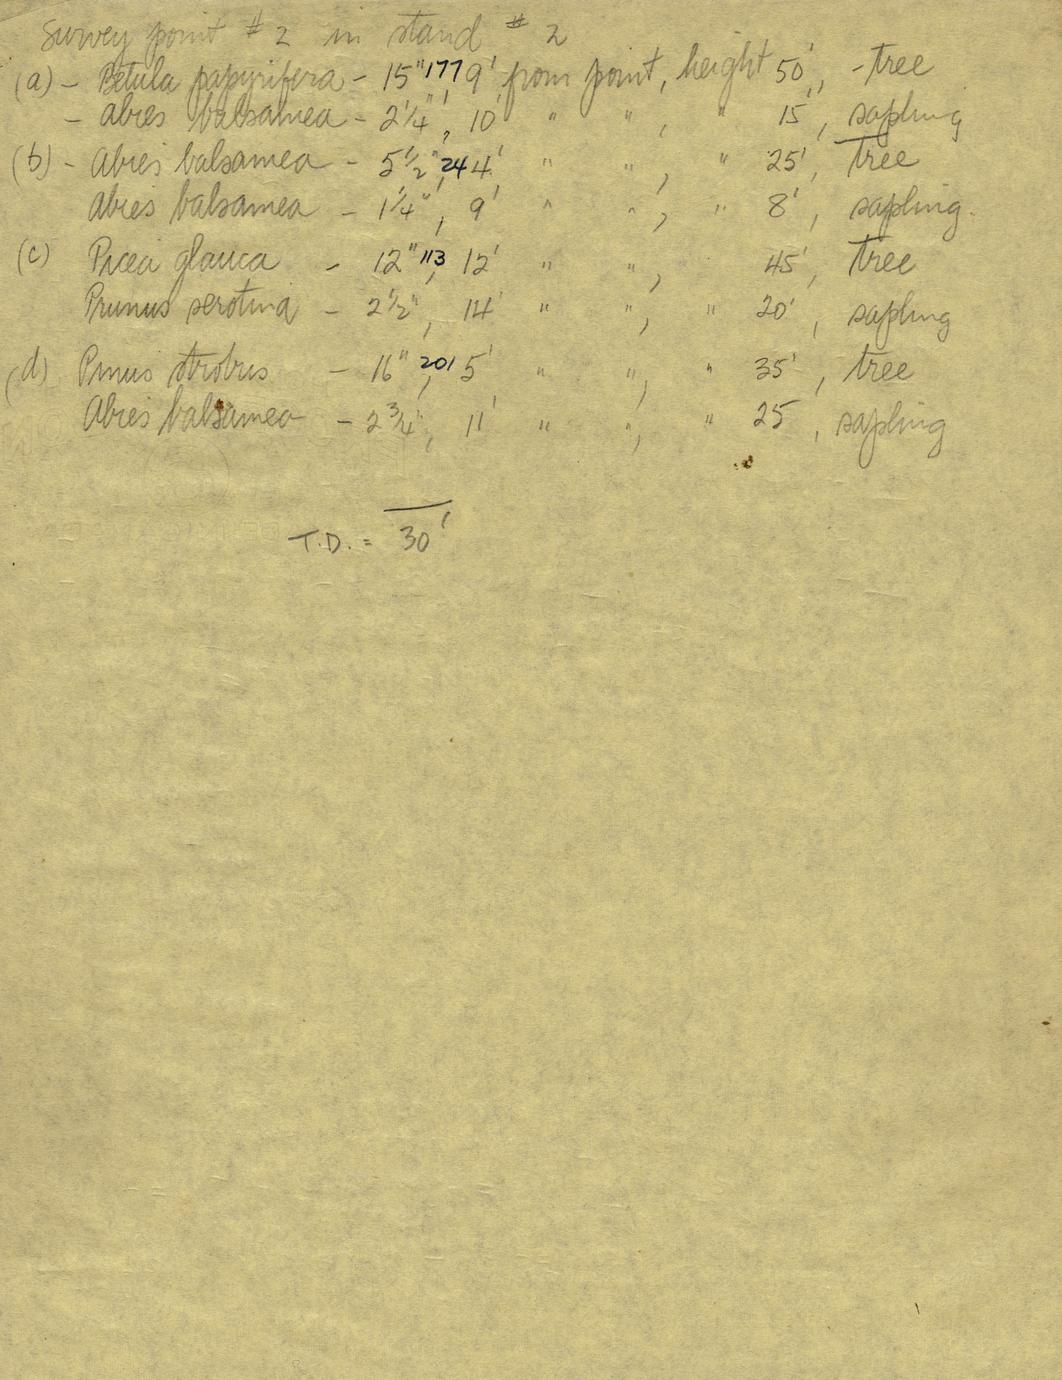 Survey point # 2 in stand # 2
(a) - Betula papyrifera - 15" 177 9' from point, height 50', - tree
- Abies balsamea - 2 1/4", 10' " ", " 15', sapling
(b) - Abies balsamea - 5 1/2", 24 4' " ", " 25', tree
Abies balsamea - 1 1/4", 9' " ", " 8', sapling.
(c) Picea glauca - 12", 113 12' " ", 45', tree
Prunus serotina - 2 1/2", 14' " ", " 20', sapling
(d) Pinus strobus - 16", 201 5' " ", " 35', tree
Abies balsamea - 2 3/4", 11' " ", " 25, sapling
T.D. = 30'